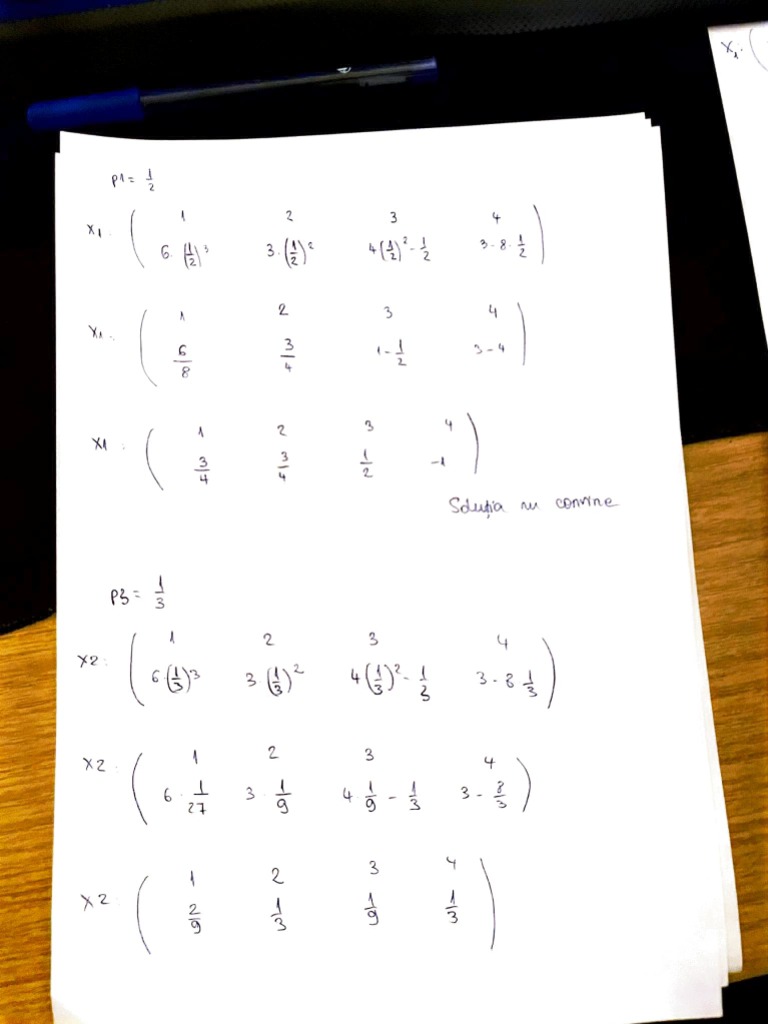 p1 = 1/2
X1: ( 1 2 3 4
6·(1/2)³ 3·(1/2)² 4(1/2)² - 1/2 3-8·1/2 )
X1: ( 1 2 3 4
6/8 3/4 1-1/2 3-4 )
X1: ( 1 2 3 4
3/4 3/4 1/2 -1 )
Soluția nu convine
p3 = 1/3
X2: ( 1 2 3 4
6·(1/3)³ 3(1/3)² 4(1/3)² - 1/3 3-8 1/3 )
X2: ( 1 2 3 4
6·1/27 3·1/9 4·1/9 - 1/3 3-8/3 )
X2: ( 1 2 3 4
2/9 1/3 1/9 1/3 )
X1: (